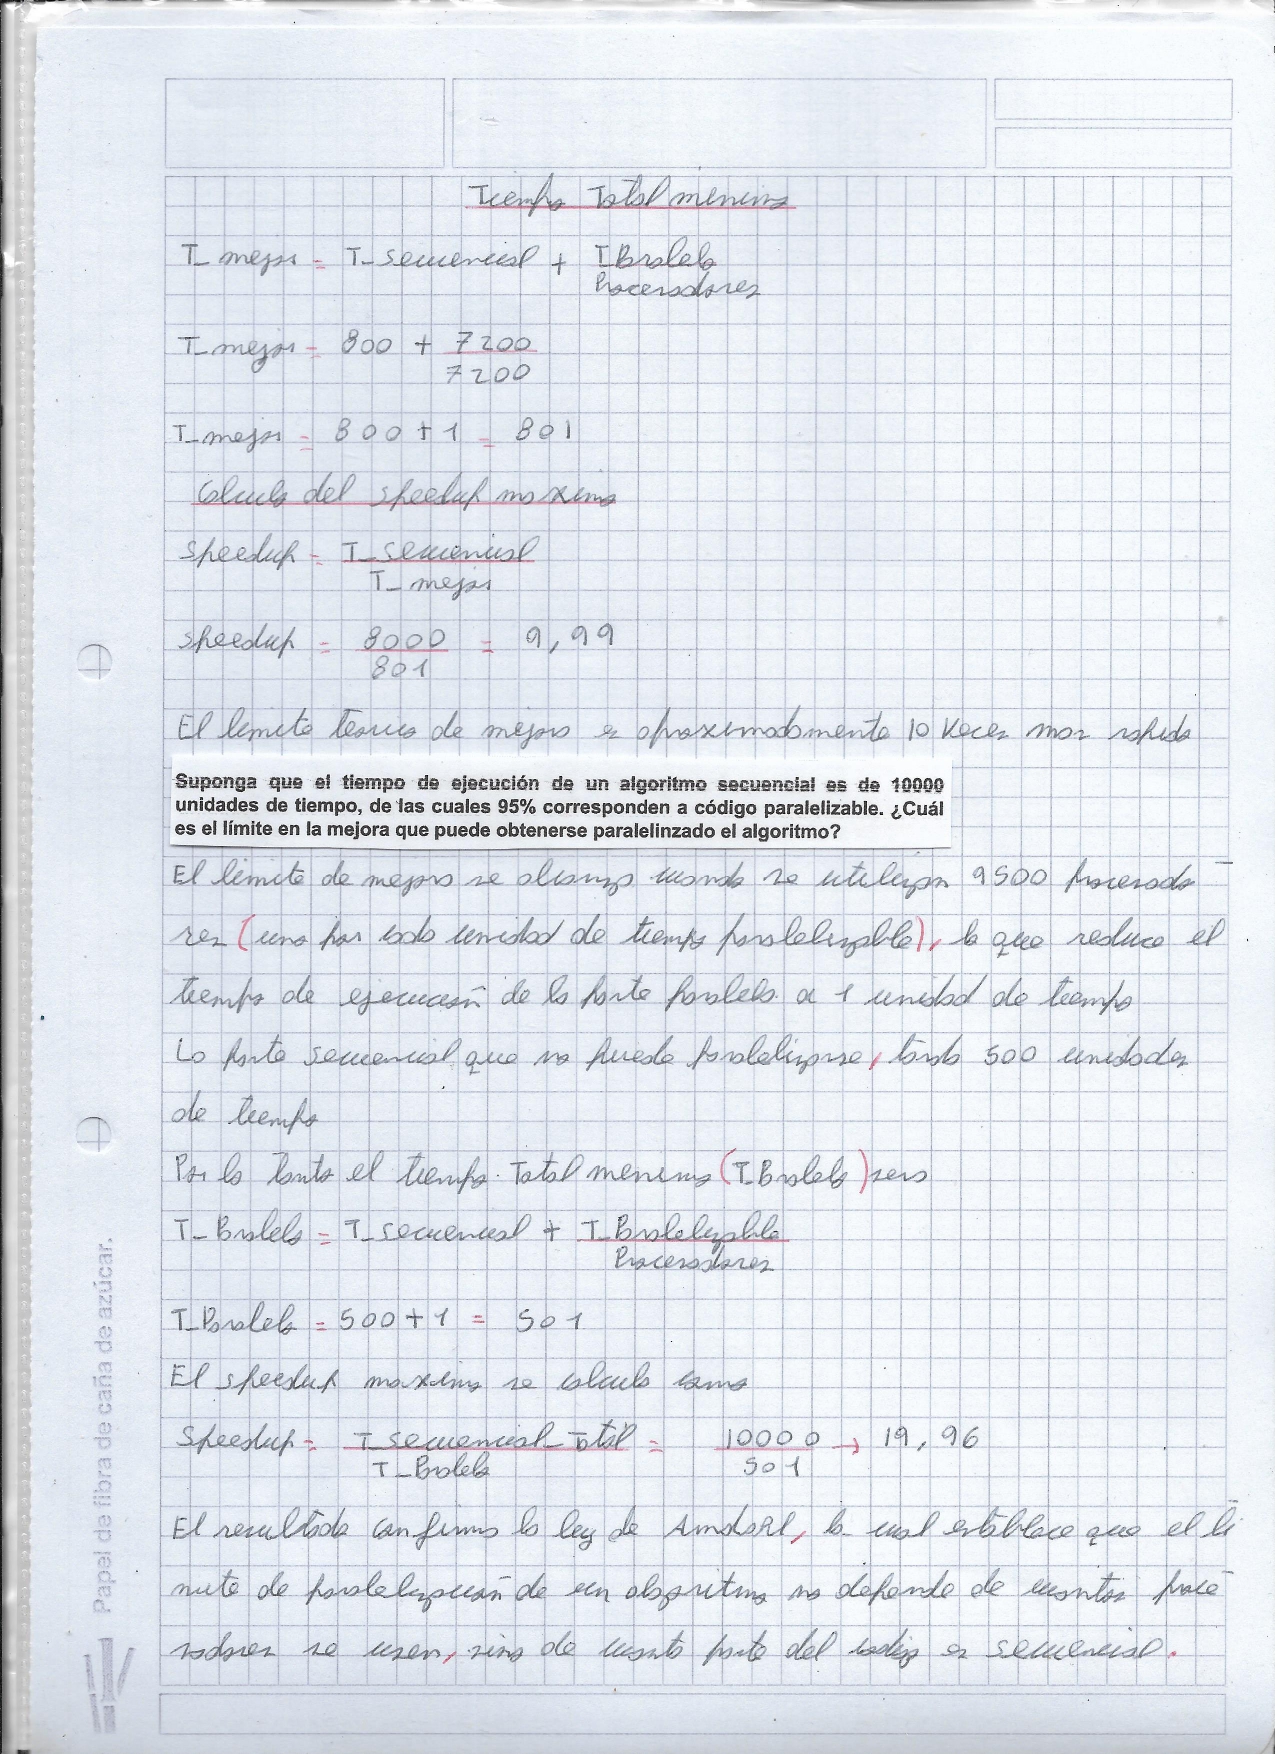 Tiempo Total minimo
T_mejor = T_secuencial + T_Paralelo
Procesadores
T_mejor = 800 + 7200
7200
T_mejor = 800 + 1 = 801
Calculo del speedup maximo
Speedup = T_secuencial
T_mejor
Speedup = 8000 = 9,99
801
El limite teorico de mejora es aproximadamente 10 veces mas rapido
Suponga que el tiempo de ejecución de un algoritmo secuencial es de 10000
unidades de tiempo, de las cuales 95% corresponden a código paralelizable. ¿Cuál
es el límite en la mejora que puede obtenerse paralelinzado el algoritmo?
El limite de mejora se alcanza cuando se utilizan 9500 procesado
res (uno por cada unidad de tiempo paralelizable), lo que reduce el
tiempo de ejecución de la parte paralela a 1 unidad de tiempo
La parte secuencial que no puede paralelizarse, tarda 500 unidades
de tiempo
Por lo tanto el tiempo Total minimo (T_Paralelo) sera
T_Paralelo = T_secuencial + T_Paralelizable
Procesadores
T_Paralelo = 500 + 1 = 501
El speedup maximo se calcula como
Speedup = T_secuencial_Total = 10000 → 19,96
T_Paralelo 501
El resultado confirma la ley de Amdahl, la cual establece que el li
mite de paralelización de un algoritmo no depende de cuantos proce
sadores se usen, sino de cuanta parte del codigo es secuencial.
Papel de fibra de caña de azúcar.